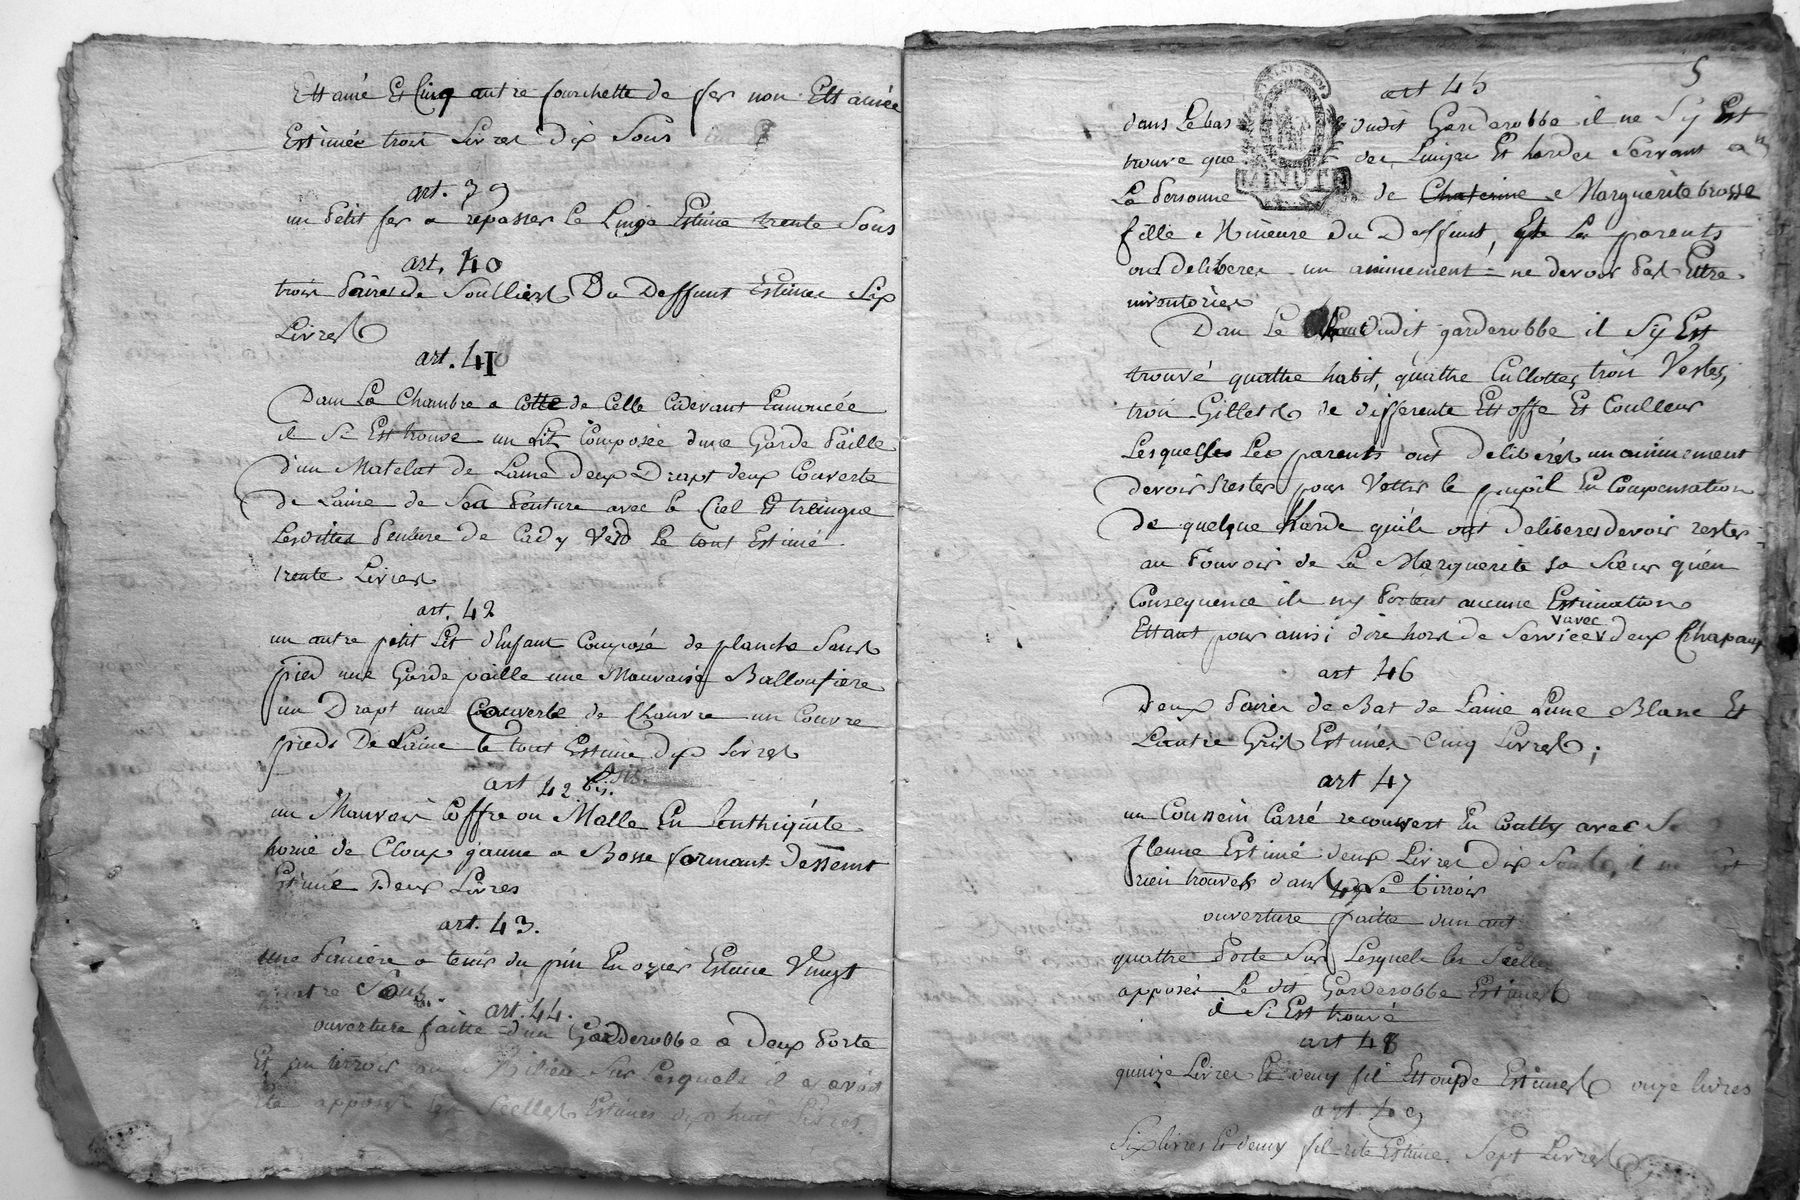 Ettamé Et Cinq autre fourchette de fer non Ettamée
Estimée trois Livres dix Sous
art. 39
un petit fer a repasser le Linge Estimé trente Sous
art. 40
trois paires de Soulliers Du Deffunt Estimés Six
Livres
art. 41
Dans La Chambre a Cotte de Celle Cidevant Ennoncée
il Si Est trouvé un Lit Composée dune Garde paille
d'un Matelat de Laine deux Drapt deux Couverte
de Laine de Sa penture avec le Ciel Et tringue
Lesdittes penture de Cady Verd Le tout Estimé
trente Livres
art. 42
un autre petit Lit d'Enfant Composé de planche Sans
pied une Garde paille une Mauvaise Balloufiere
un Drapt une Couverte de Chanvre un Couvre
pieds De Laine le tout Estimé dix Livres
art 42 bis.
un Mauvais Coffre ou Malle En
horné de Cloux jaune a Bosse formant Dessemt
Estimé Deux Livres
art. 43.
une paniere a tenir du pin En ozier Estimé Vingt
quatre Sous
art. 44.
ouverture faitte d'un Garderobbe a deux Porte
Et un tirroir au Milieu Sur Lesquels il avoit
Eté apposés les Scellés Estimés dix huit Livres.
5
art 45
dans Le bas dudit Garderobbe il ne Sy Est
trouvé que des Linges Et hardes Servant a
La personne de Chaterine Marguerite brosse
fille Mineure du Deffunt, que Les parents
ont deliberer unanimement ne devoir pas Ettre
inventories
MINUTE
Dans Le haut dudit garderobbe il Sy Est
trouvé quattre habit, quattre Cullottes, trois Vestes,
trois Gillets de differente Ettoffe Et Coulleur
Lesquelles Les parents ont deliberés unanimement
devoir Rester pour Vettir le pupil En Compensation
de quelque Harde quils ont deliberes devoir rester
au Pouvoir de La Marguerite sa Sœur quen
Consequence ils ny portent aucune Estimation
Ettant pour ainsi dire hors de Service avec deux Chapaux
art 46
Deux paires de Bas de Laine Lune Blanc Et
Lautre Gris Estimés Cinq Livres;
art 47
un Coussein Carré recouvert En Coutty avec Sa
pleume Estimé deux Livres Dix Souls, il ne
rien trouvés dans Le tirroir
ouverture faitte dun
quattre Porte Sur Lesquels les Scellés
apposés Le dit Garderobbe Estimés
il Si Est trouvé
art 48
quinze Livres Et demy fil Ettoupe Estimés onze livres
art 49
Six livres Et demy fil rite Estimé Sept Livres